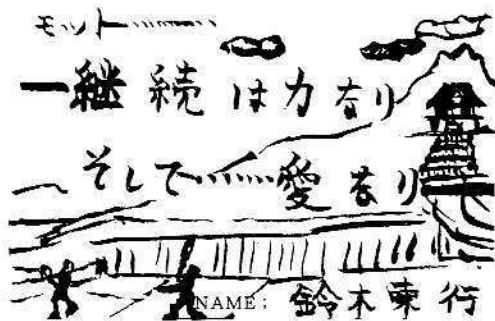 モットー…………
継続は力なり
そして………愛なり
NAME: 鈴木東行